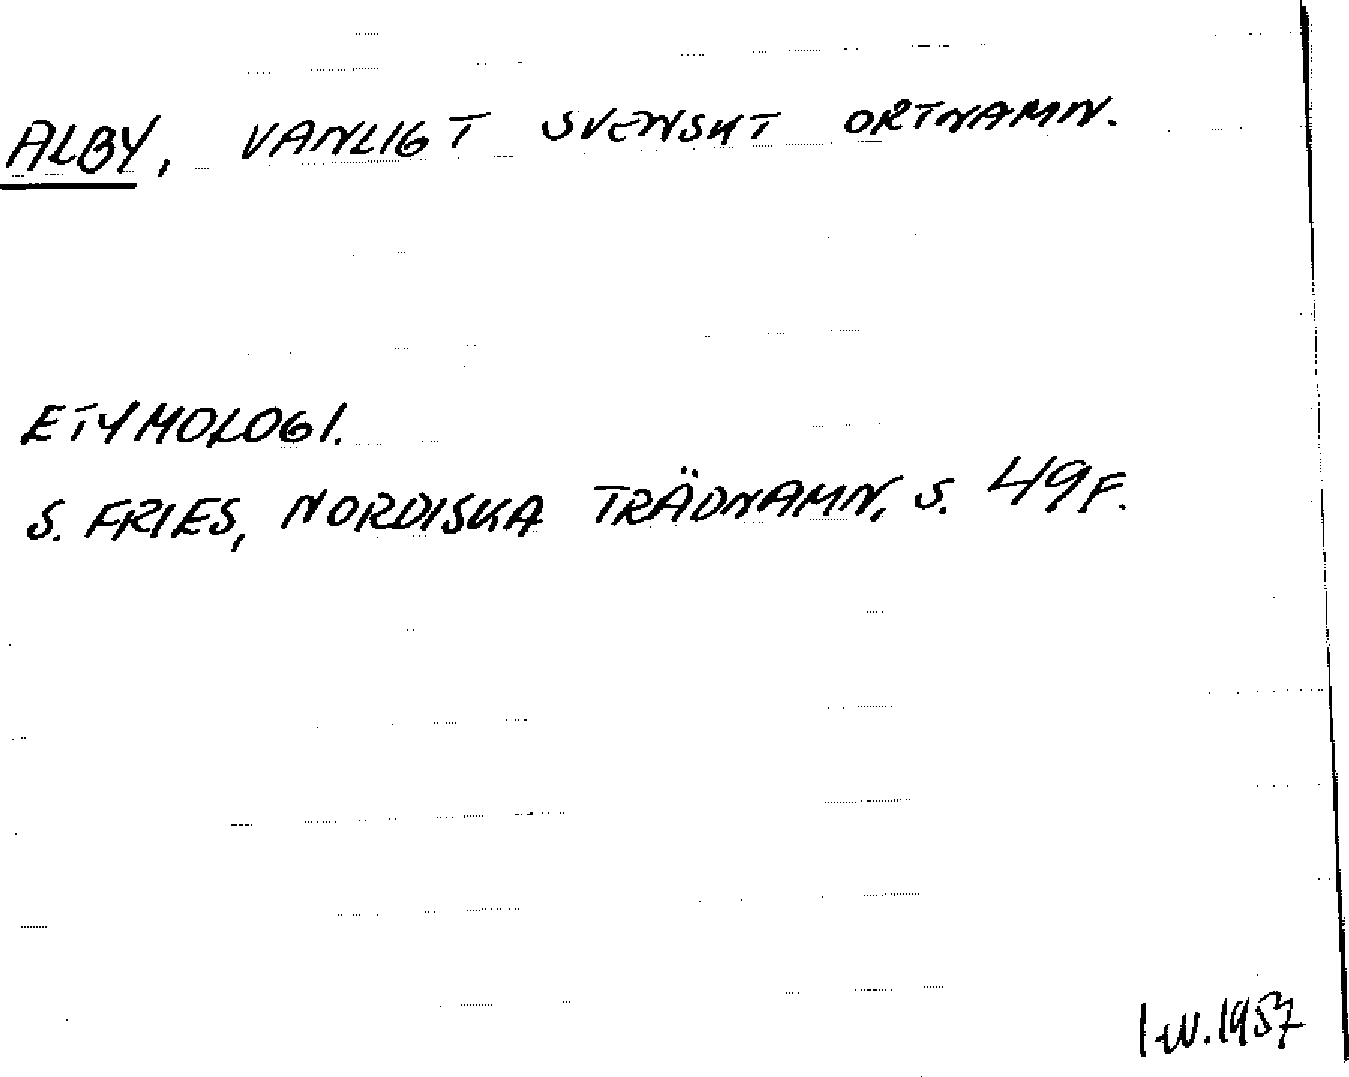 ALBY, VANLIGT SVENSKT ORTNAMN.
ETYMOLOGI.
S. FRIES, NORDISKA TRÄDNAMN, S. 49 F.
1957